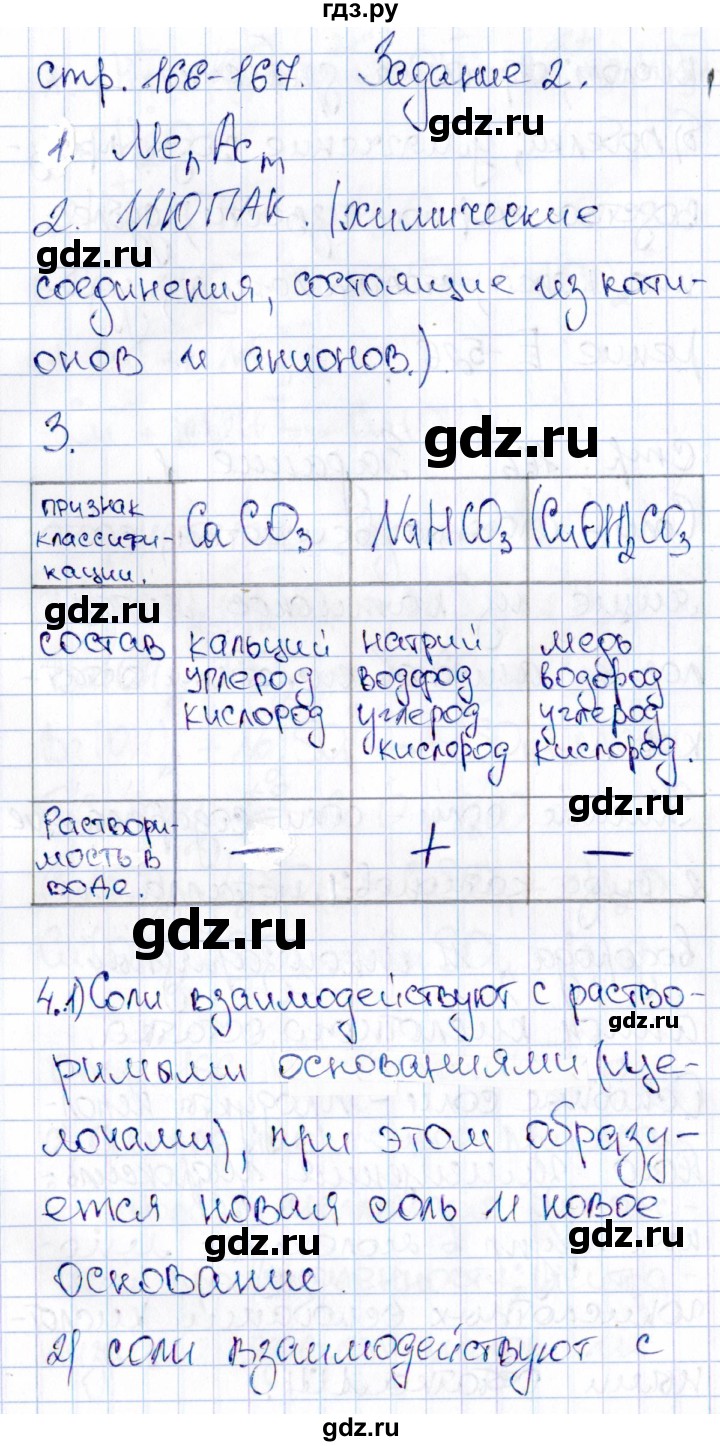 гдз.ру
стр. 166-167. Задание 2.
gdz.ru
1. MenAcm
2. ИЮПАК. (химические
gdz.ru
соединения, состоящие из кати-
онов и анионов.)
gdz.ru
3.
признак классифи-кации. CaCO3 NaHCO3 (CuOH)2CO3
gdz.ru
состав кальций натрий медь
углерод водород водород
кислород углерод углерод
кислород кислород.
gdz.ru
Раствори-мость в воде. — + —
gdz.ru
4.1) Соли взаимодействуют с раство-
gdz.ru
римыми основаниями (ще-
лочами), при этом образу-
ется новая соль и новое
gdz.ru gdz.ru
основание.
2) соли взаимодействуют с
gdz.ru